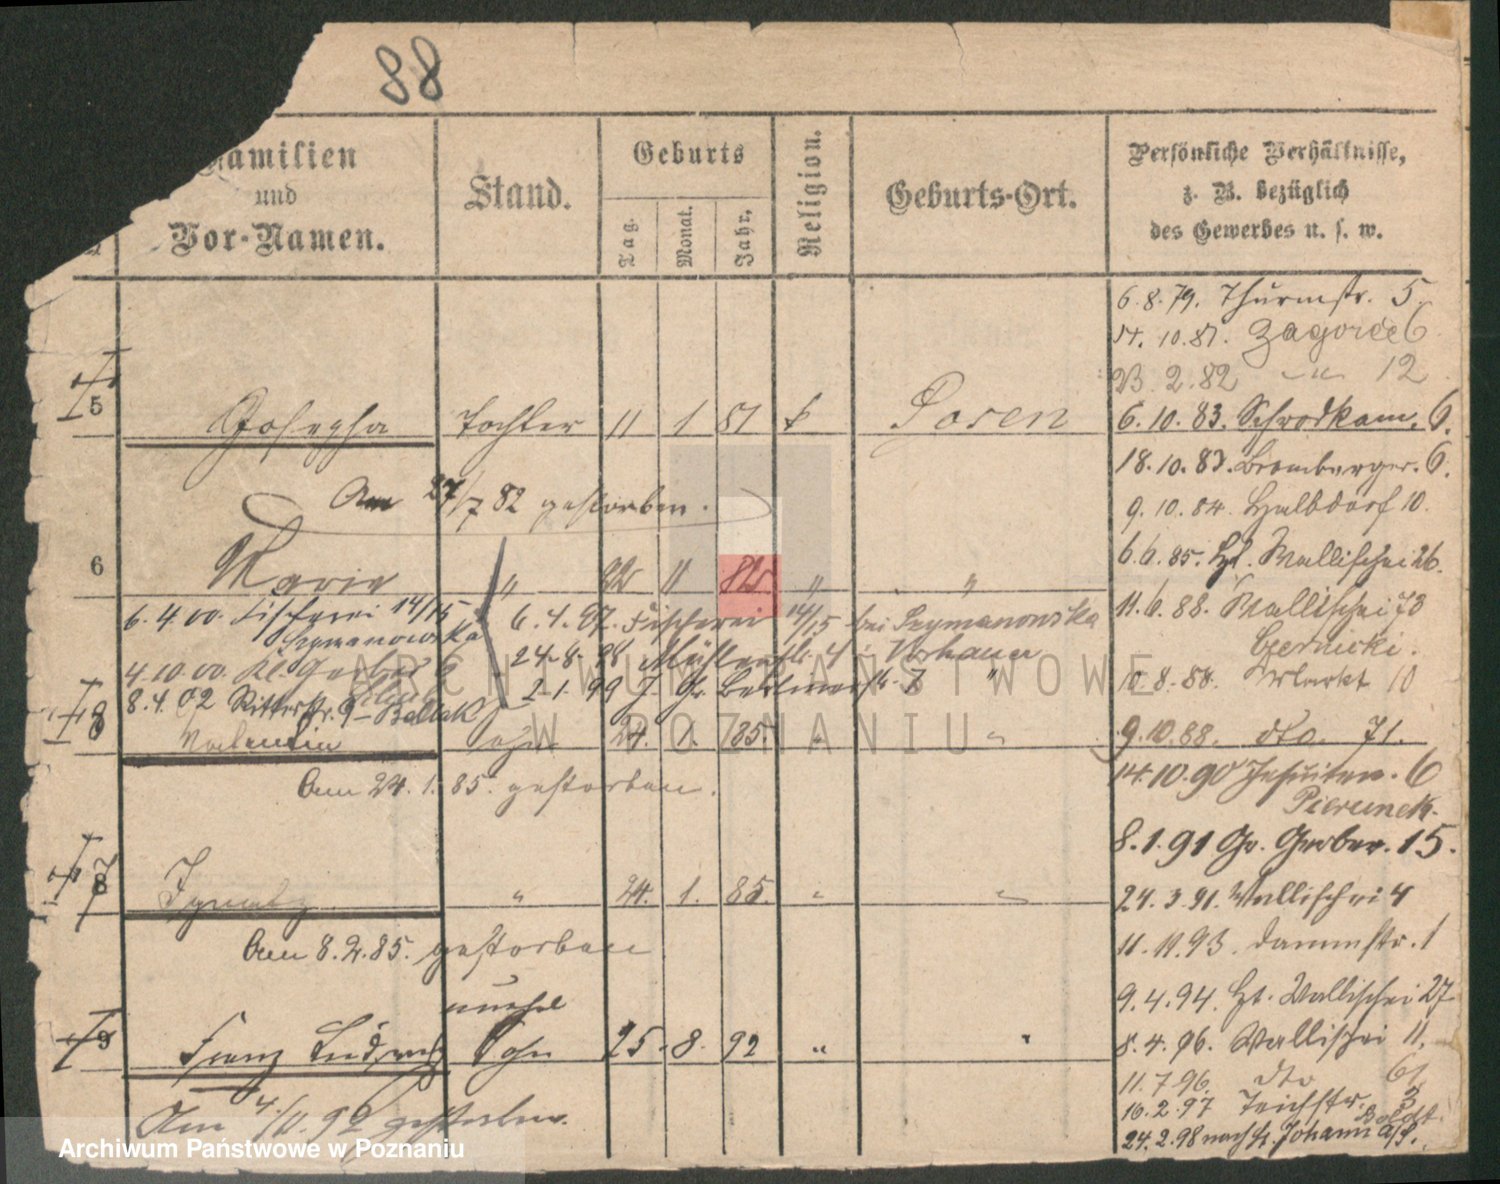 88
Familien
und
Vor-Namen.
Stand.
Geburts
Tag.
Monat.
Jahr.
Religion.
Geburts-Ort.
Persönliche Verhältnisse,
z. B. bezüglich
des Gewerbes u. s. w.
6. 8. 79. Thurmstr. 5.
10. 81. Zagorze 6
2. 82 " 12
5 Josepha Tochter 11 1 81 k Posen
6. 10. 83. Schrodkam. 6.
18. 10. 83. Bromberger. 6.
Am 27/7 82 gestorben.
9. 10. 84. Halbdorf 10.
6. 6. 85. Wallischei 26.
6 Marie " 22 11 82 " "
11. 6. 88. Wallischei 73
Czernicki.
6. 4. 00. Fischerei 14/15
Szymanowska
6. 4. 97. Fischerei 14/15 bei Szymanowska
24. 8. 98 Mühlenstr. 4 : Vorhauer
4. 10. 00. Kl. Gerber 6
2. 1. 99 "
8. 4. 02 Ritterstr. 9
10. 8. 88. 10
8 Valentin Sohn 24. 1. 85. " "
9. 10. 88. dto. 71.
Am 24. 1. 85. gestorben.
14. 10. 90 Jesuiten. 6
Pierunek.
8. 1. 91 Gr. Gerber. 15.
8 Ignatz " 24. 1. 85. " "
24. 3. 91. Wallischei 4
Am 8. 2. 85. gestorben
11. 11. 93. Dammstr. 1
9. 4. 94. Wallischei 27
unehel
9 Franz Ludwig Sohn 25. 8. 92 " "
8. 4. 96. Wallischei 11.
11. 7. 96. dto 61
16. 2. 97 Teichstr. 3
Am 4./11. 92 gestorben.
24. 2. 98 nach
ARCHIWUM PAŃSTWOWE
W POZNANIU
Archiwum Państwowe w Poznaniu